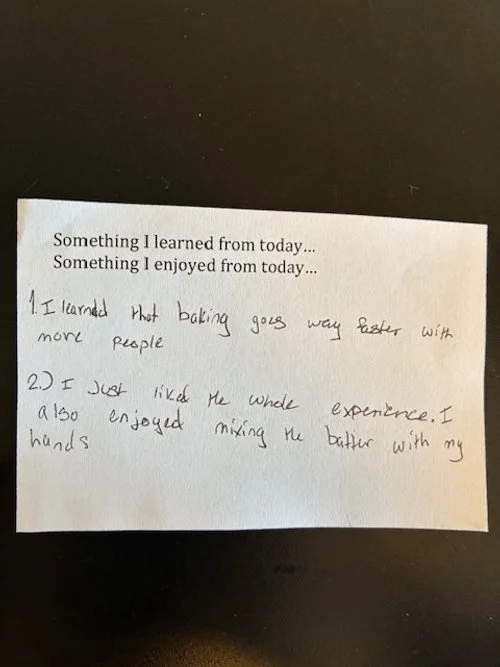 Something I learned from today...
Something I enjoyed from today...
1. I learned that baking goes way faster with
more people
2.) I Just liked the whole experience. I
also enjoyed mixing the batter with my
hands